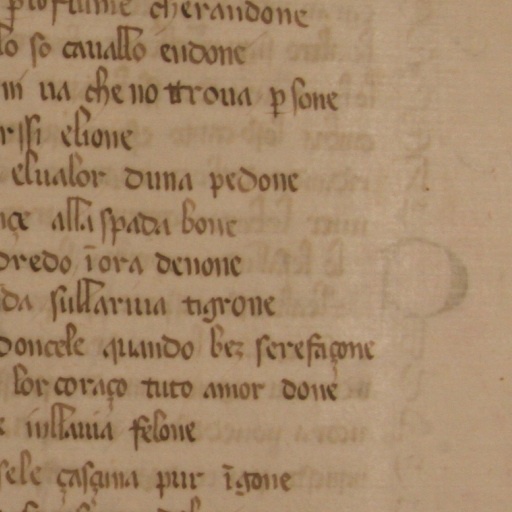 cherandone
lo so cauallo endone
ni ua che no trroua ꝑsone
rissi elione
elualor duna pedone
nçe alla spada bone
dredo īora denone
da sullariua tigrone
doncele quando beʒ serefaçone
lor coraço tuto amor done
inllauia felone
sele çasçuna pur īgone